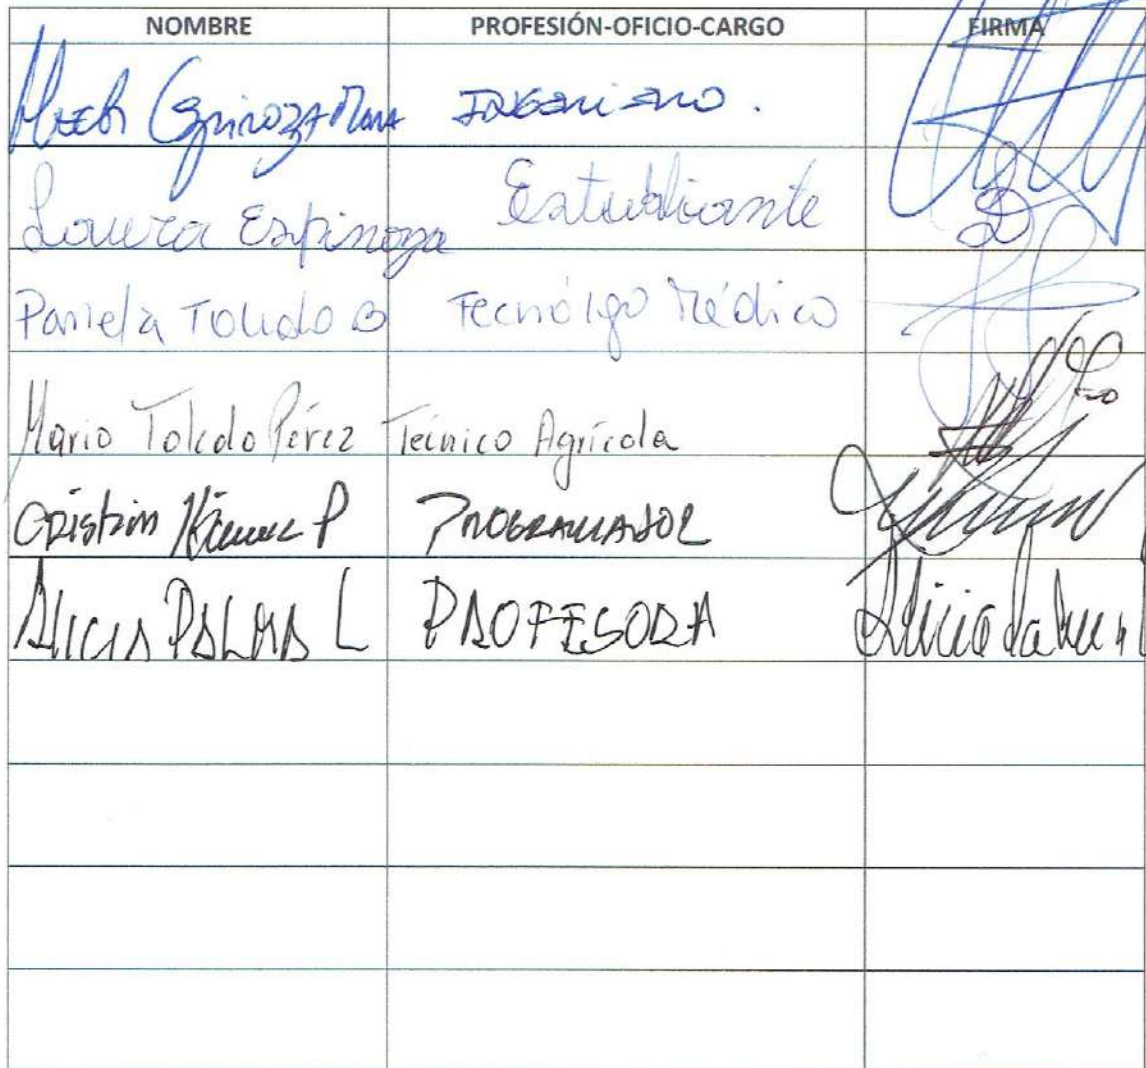 NOMBRE PROFESIÓN-OFICIO-CARGO FIRMA
Espinoza INGENIERO.
Laura Espinoza Estudiante
Pamela Toledo B Tecnólgo Médico
Mario Toledo Pérez Técnico Agrícola
CRISTIAN P PROGRAMADOR
ALICIA PALMA L PROFESORA